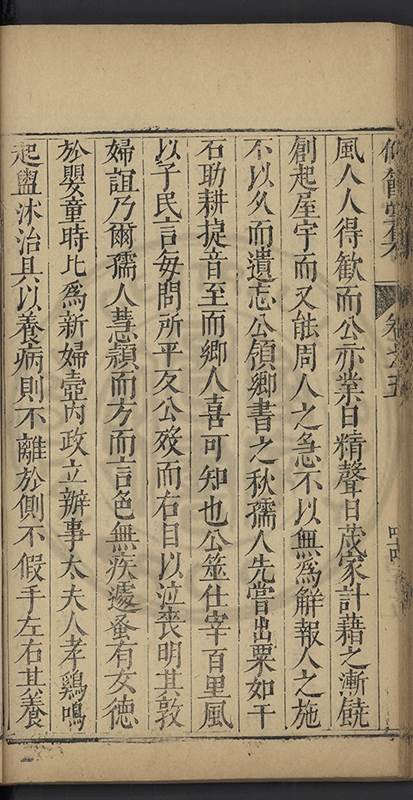 仰節堂集 卷之五
風人人得歡而公亦業日精聲日茂家計藉之漸饒
創起屋宇而又能周人之急不以無為解報人之施
不以久而遺忘公領鄉書之秋孺人先嘗出粟如干
石助耕捷音至而鄉人喜可知也公筮仕宰百里風
以子民言每問所平反公效而右目以泣喪明其敦
婦誼乃爾孺人慧穎而方而言色無疾遽蚤有女德
於嬰童時比為新婦壼內政立辦事太夫人孝鷄鳴
起盥沐治具以養病則不離於側不假手左右其養